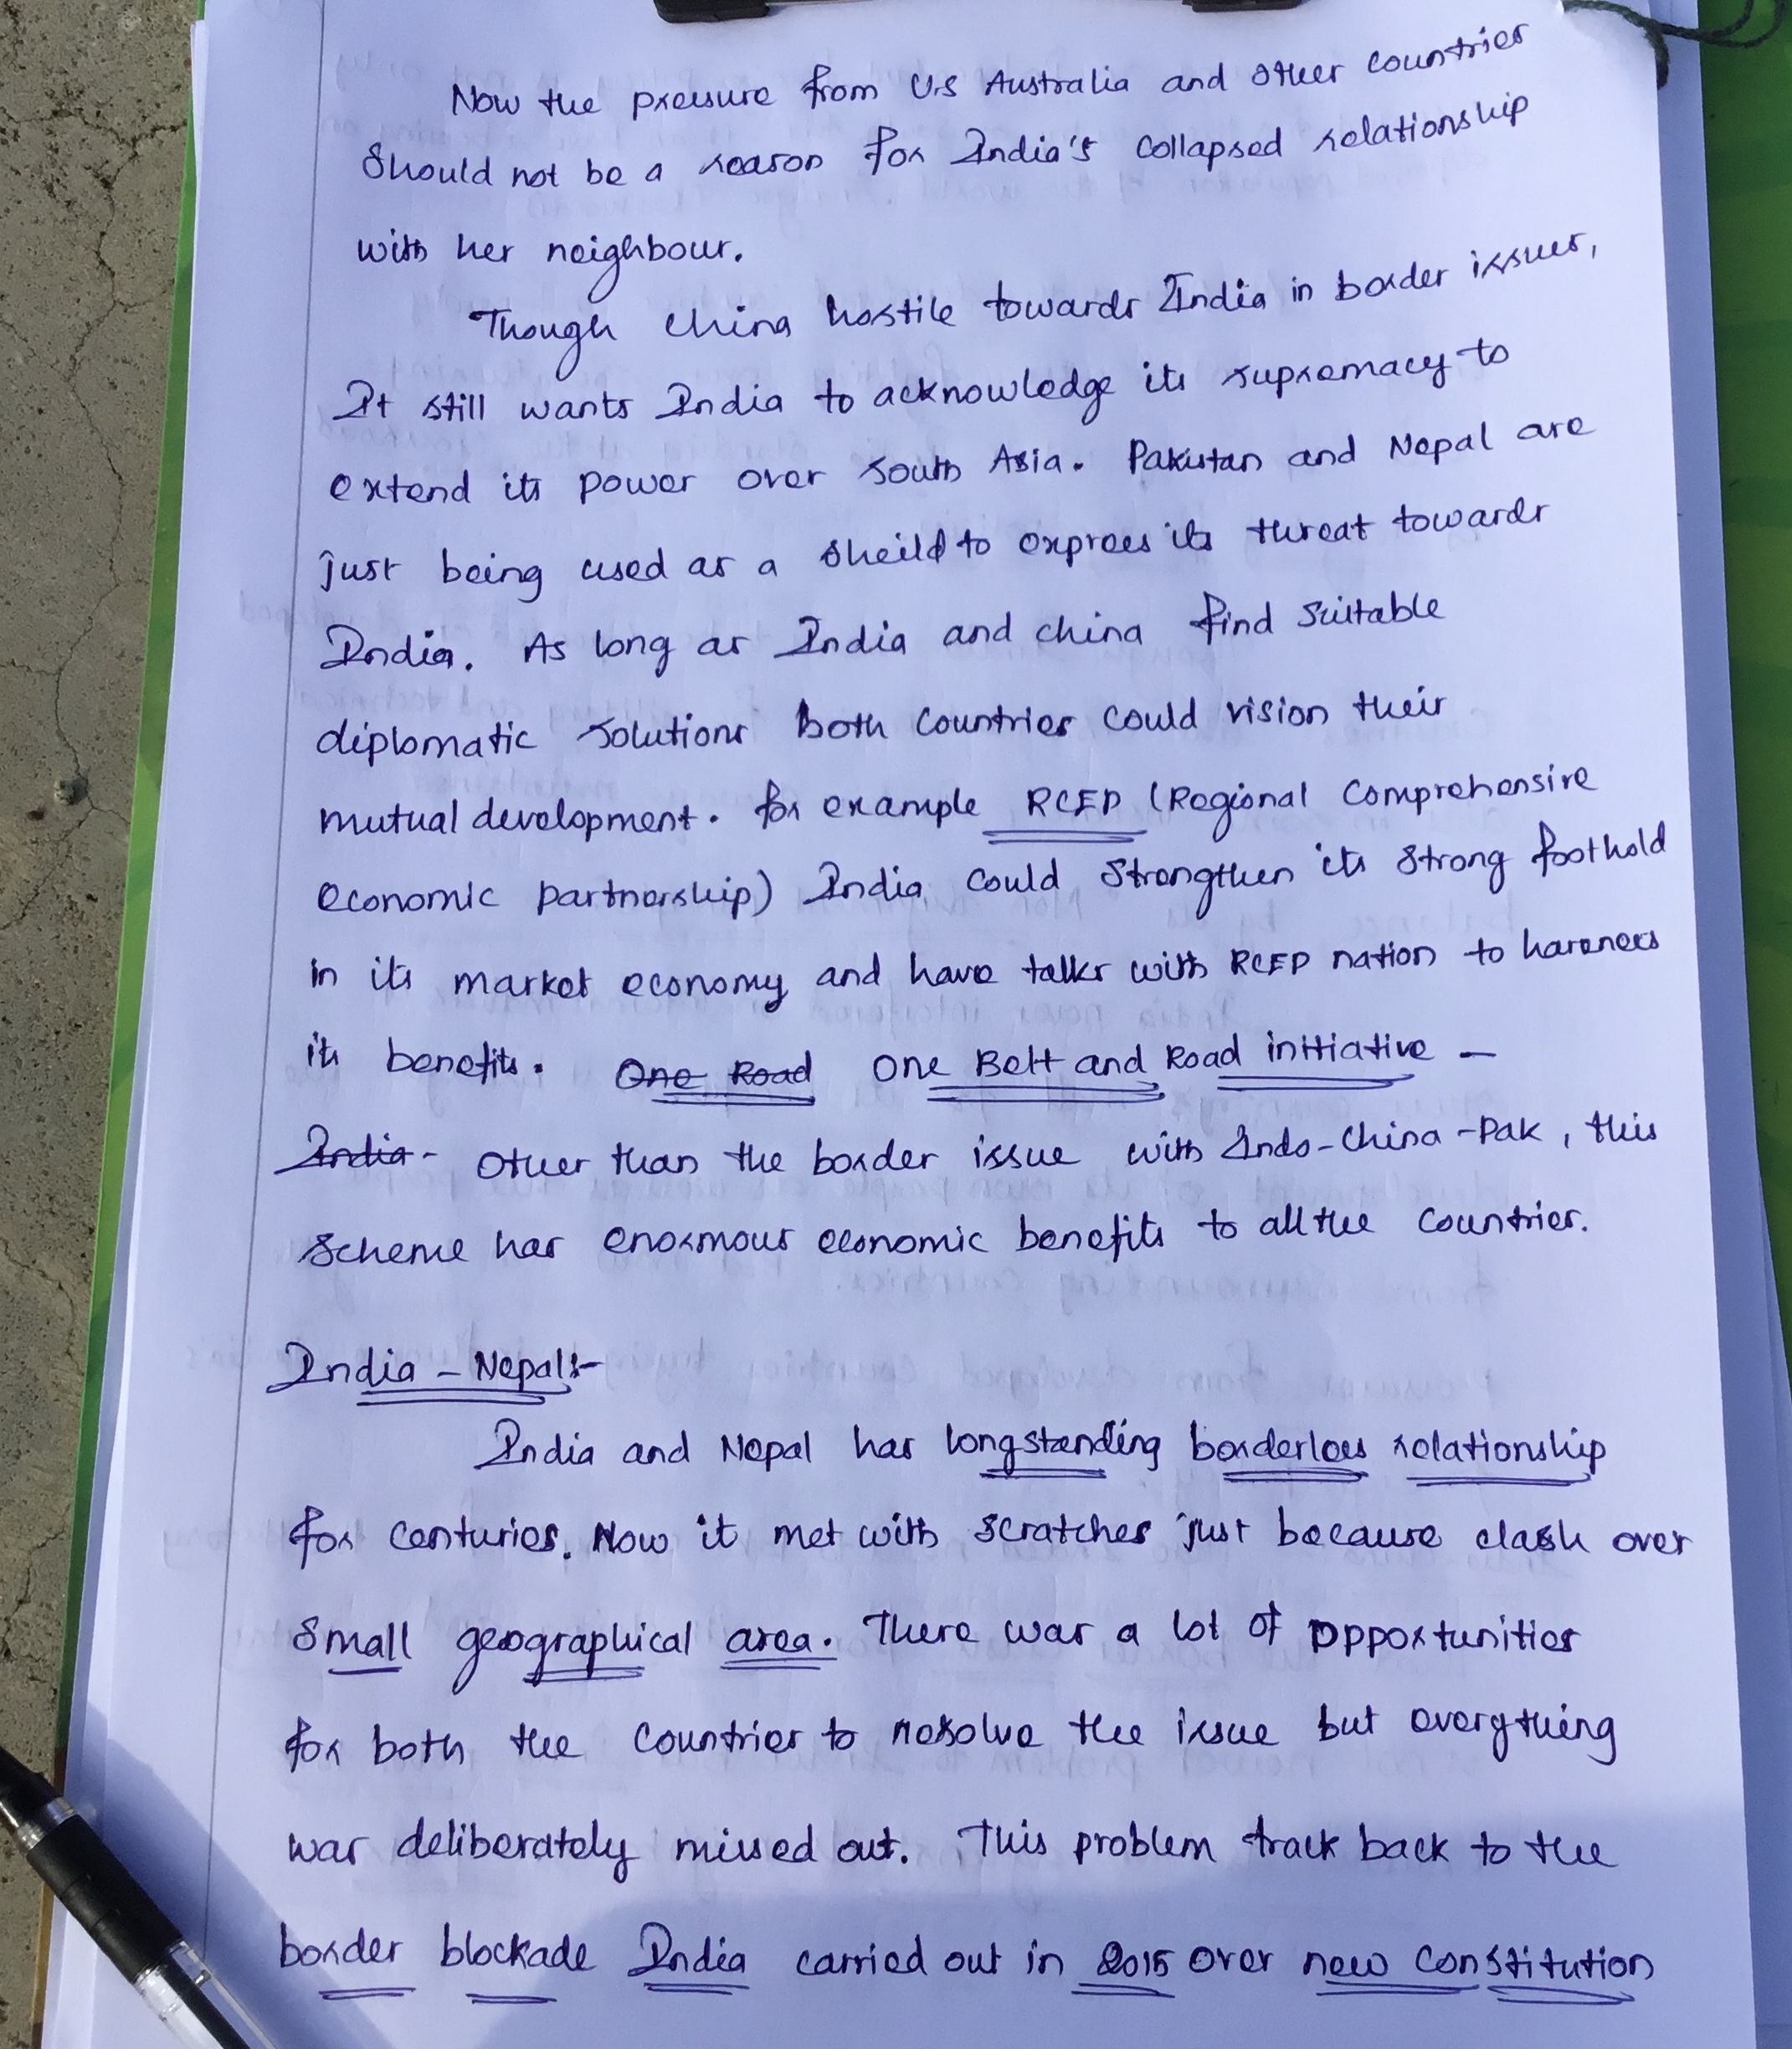 Now the pressure from U.S Australia and other countries
Should not be a reason for India's collapsed relationship
with her neighbour.
Though china hostile towards India in border issues,
It still wants India to acknowledge its supremacy to
extend its power over south Asia. Pakistan and Nepal are
just being used as a sheild to express its threat towards
India. As long as India and china find suitable
diplomatic solutions both countries could vision their
mutual development. for example RCEP (Regional Comprehensive
economic partnership) India could strengthen its strong foothold
in its market economy and have talks with RCEP nation to hareness
its benefits. One Road One Belt and Road initiative -
India - Other than the border issue with Indo-China-Pak, this
scheme has enormous economic benefits to all the countries.
India - Nepal:-
India and Nepal has longstanding borderless relationship
for centuries. Now it met with scratches just because clash over
small geographical area. There was a lot of opportunities
for both the countries to resolve the issue but everything
was deliberately missed out. This problem track back to the
border blockade India carried out in 2015 over new constitution